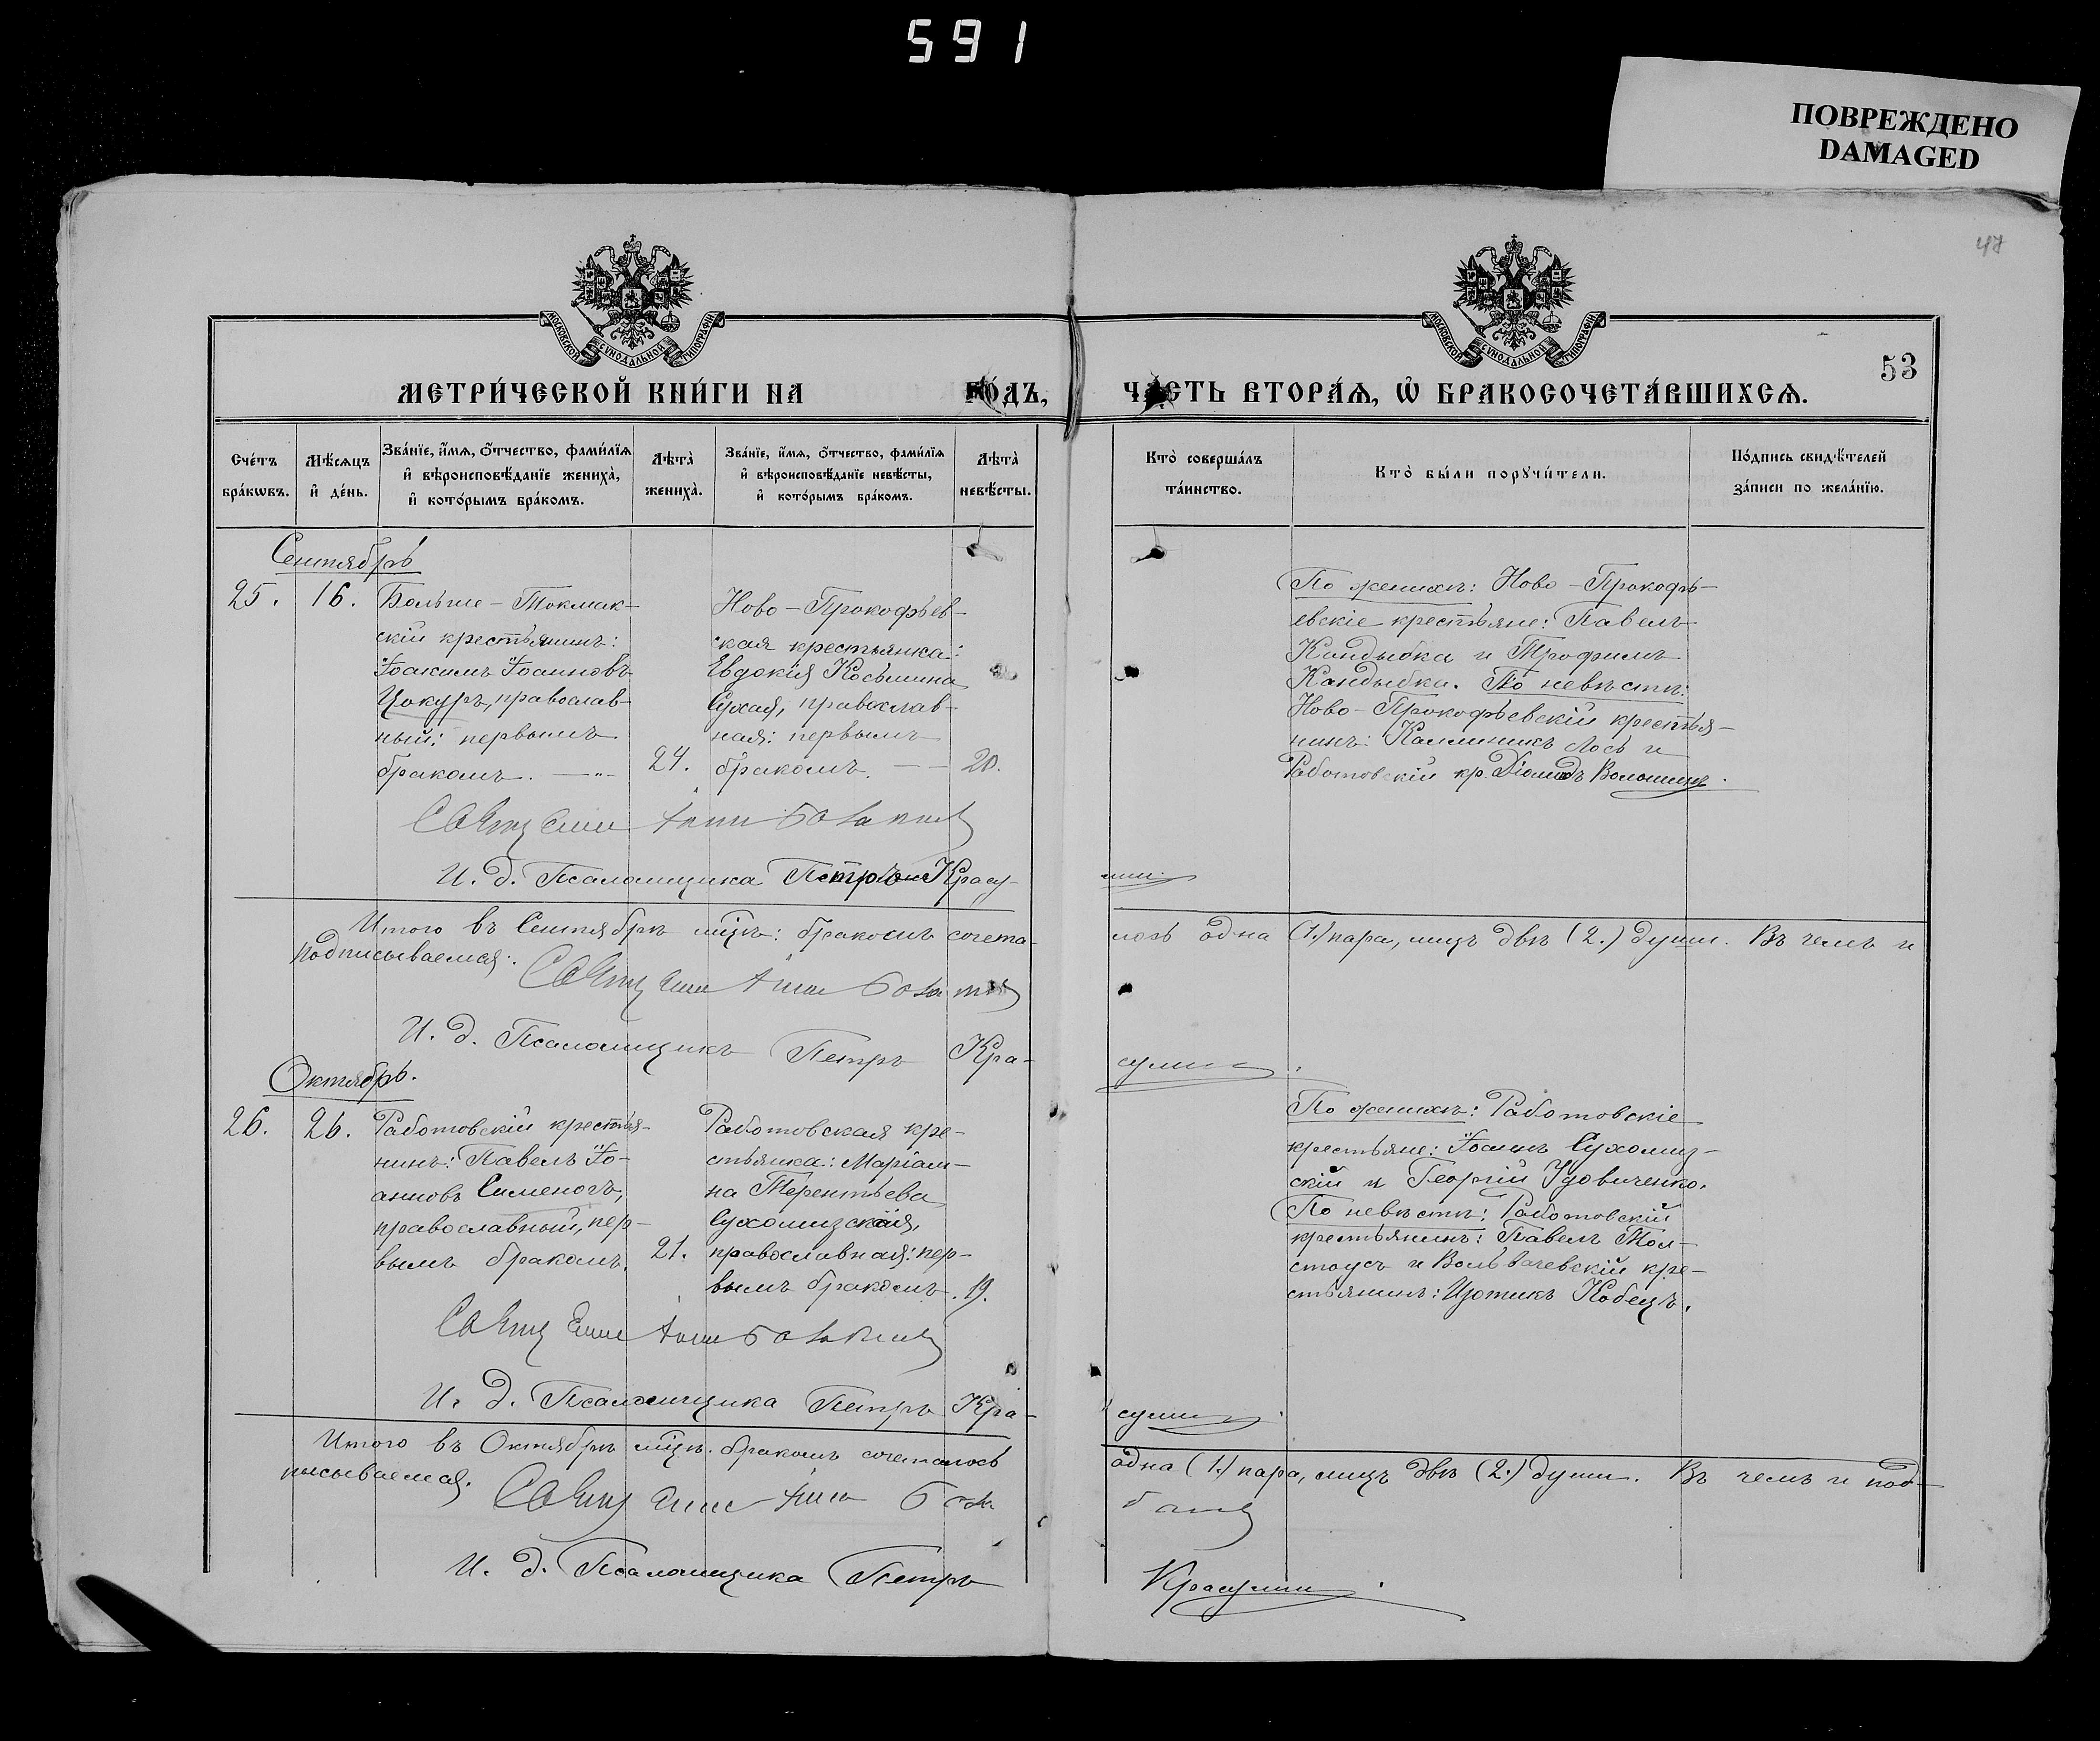 591
ПОВРЕЖДЕНО
DAMAGED
47
МОСКОВСКОЙ СѴНОДАЛЬНОЙ ТИПОГРАФІИ
МОСКОВСКОЙ СѴНОДАЛЬНОЙ ТИПОГРАФІИ
53
МЕТРИ́ЧЕСКОЙ КНИ́ГИ НА ГО́ДЪ,
ЧА́СТЬ ВТОРА́Ѧ, Ѽ БРАКОСОЧЕТА́ВШИХСѦ.
Сче́тъ бра́кѡвъ.
Мѣ́сѧцъ и҆ де́нь.
Зва́нїе, и҆́мѧ, ѻ҆́тчество, фами́лїѧ и҆ вѣроисповѣ́данїе жениха̀, и҆ кото́рымъ бра́комъ.
Лѣ́та̀ жениха̀.
Зва́нїе, и҆́мѧ, ѻ҆́тчество, фами́лїѧ и҆ вѣроисповѣ́данїе невѣ́сты, и҆ кото́рымъ бра́комъ.
Лѣ́та̀ невѣ́сты.
Кто̀ соверша́лъ та́инство.
Кто̀ бы́ли порꙋчи́тели.
По́дпись свидѣ́телей за́писи по жела́нїю.
Сентябрь
25. 16.
Больше-Токмак-
скій крестьянинъ:
Іоакимъ Іоанновъ
Цокуръ, православ-
ный; первымъ
бракомъ.
24.
Ново-Прокофьев-
ская крестьянка:
Евдокія Косьмина
Сухая, православ-
ная: первымъ
бракомъ.
20.
По женихѣ: Ново-Прокофь-
евскіе крестьяне: Павелъ
Кандыбка и Трофимъ
Кандыбка. По невѣстѣ:
Ново-Прокофьевскій крестья-
нинъ: Каллиникъ Лось и
Работовскій кр. Діомидъ Волошинъ.
И. д. Псаломщика Петръ Красу-
лин.
Итого въ Сентябрѣ мцѣ: бракомъ сочета-
лось одна (1.) пара, лицъ двѣ (2.) души. Въ чемъ и
подписываемся:
И. д. Псаломщикъ Петръ Кра-
сулин.
Октябрь.
26. 26.
Работовскій крестья-
нинъ: Павелъ Іо-
анновъ Сименогъ,
православный, пер-
вымъ бракомъ.
21.
Работовская кре-
стьянка: Маріам-
на Терентьева
Сухомизская,
православная: пер-
вымъ бракомъ.
19.
По женихѣ: Работовскіе
крестьяне: Іоаннъ Сухомиз-
скій и Георгій Удовиченко.
По невѣстѣ: Работовскій
крестьянинъ: Павелъ Тол-
стоусъ и Вольвачевскій кре-
стьянинъ: Изотикъ Кобецъ.
И. д. Псаломщика Петръ Кра-
сулин.
Итого въ Октябрѣ мцѣ. бракомъ сочеталось
одна (1.) пара, лицъ двѣ (2.) души. Въ чемъ и под-
писываемся.
И. д. Псаломщика Петръ
Красулин.